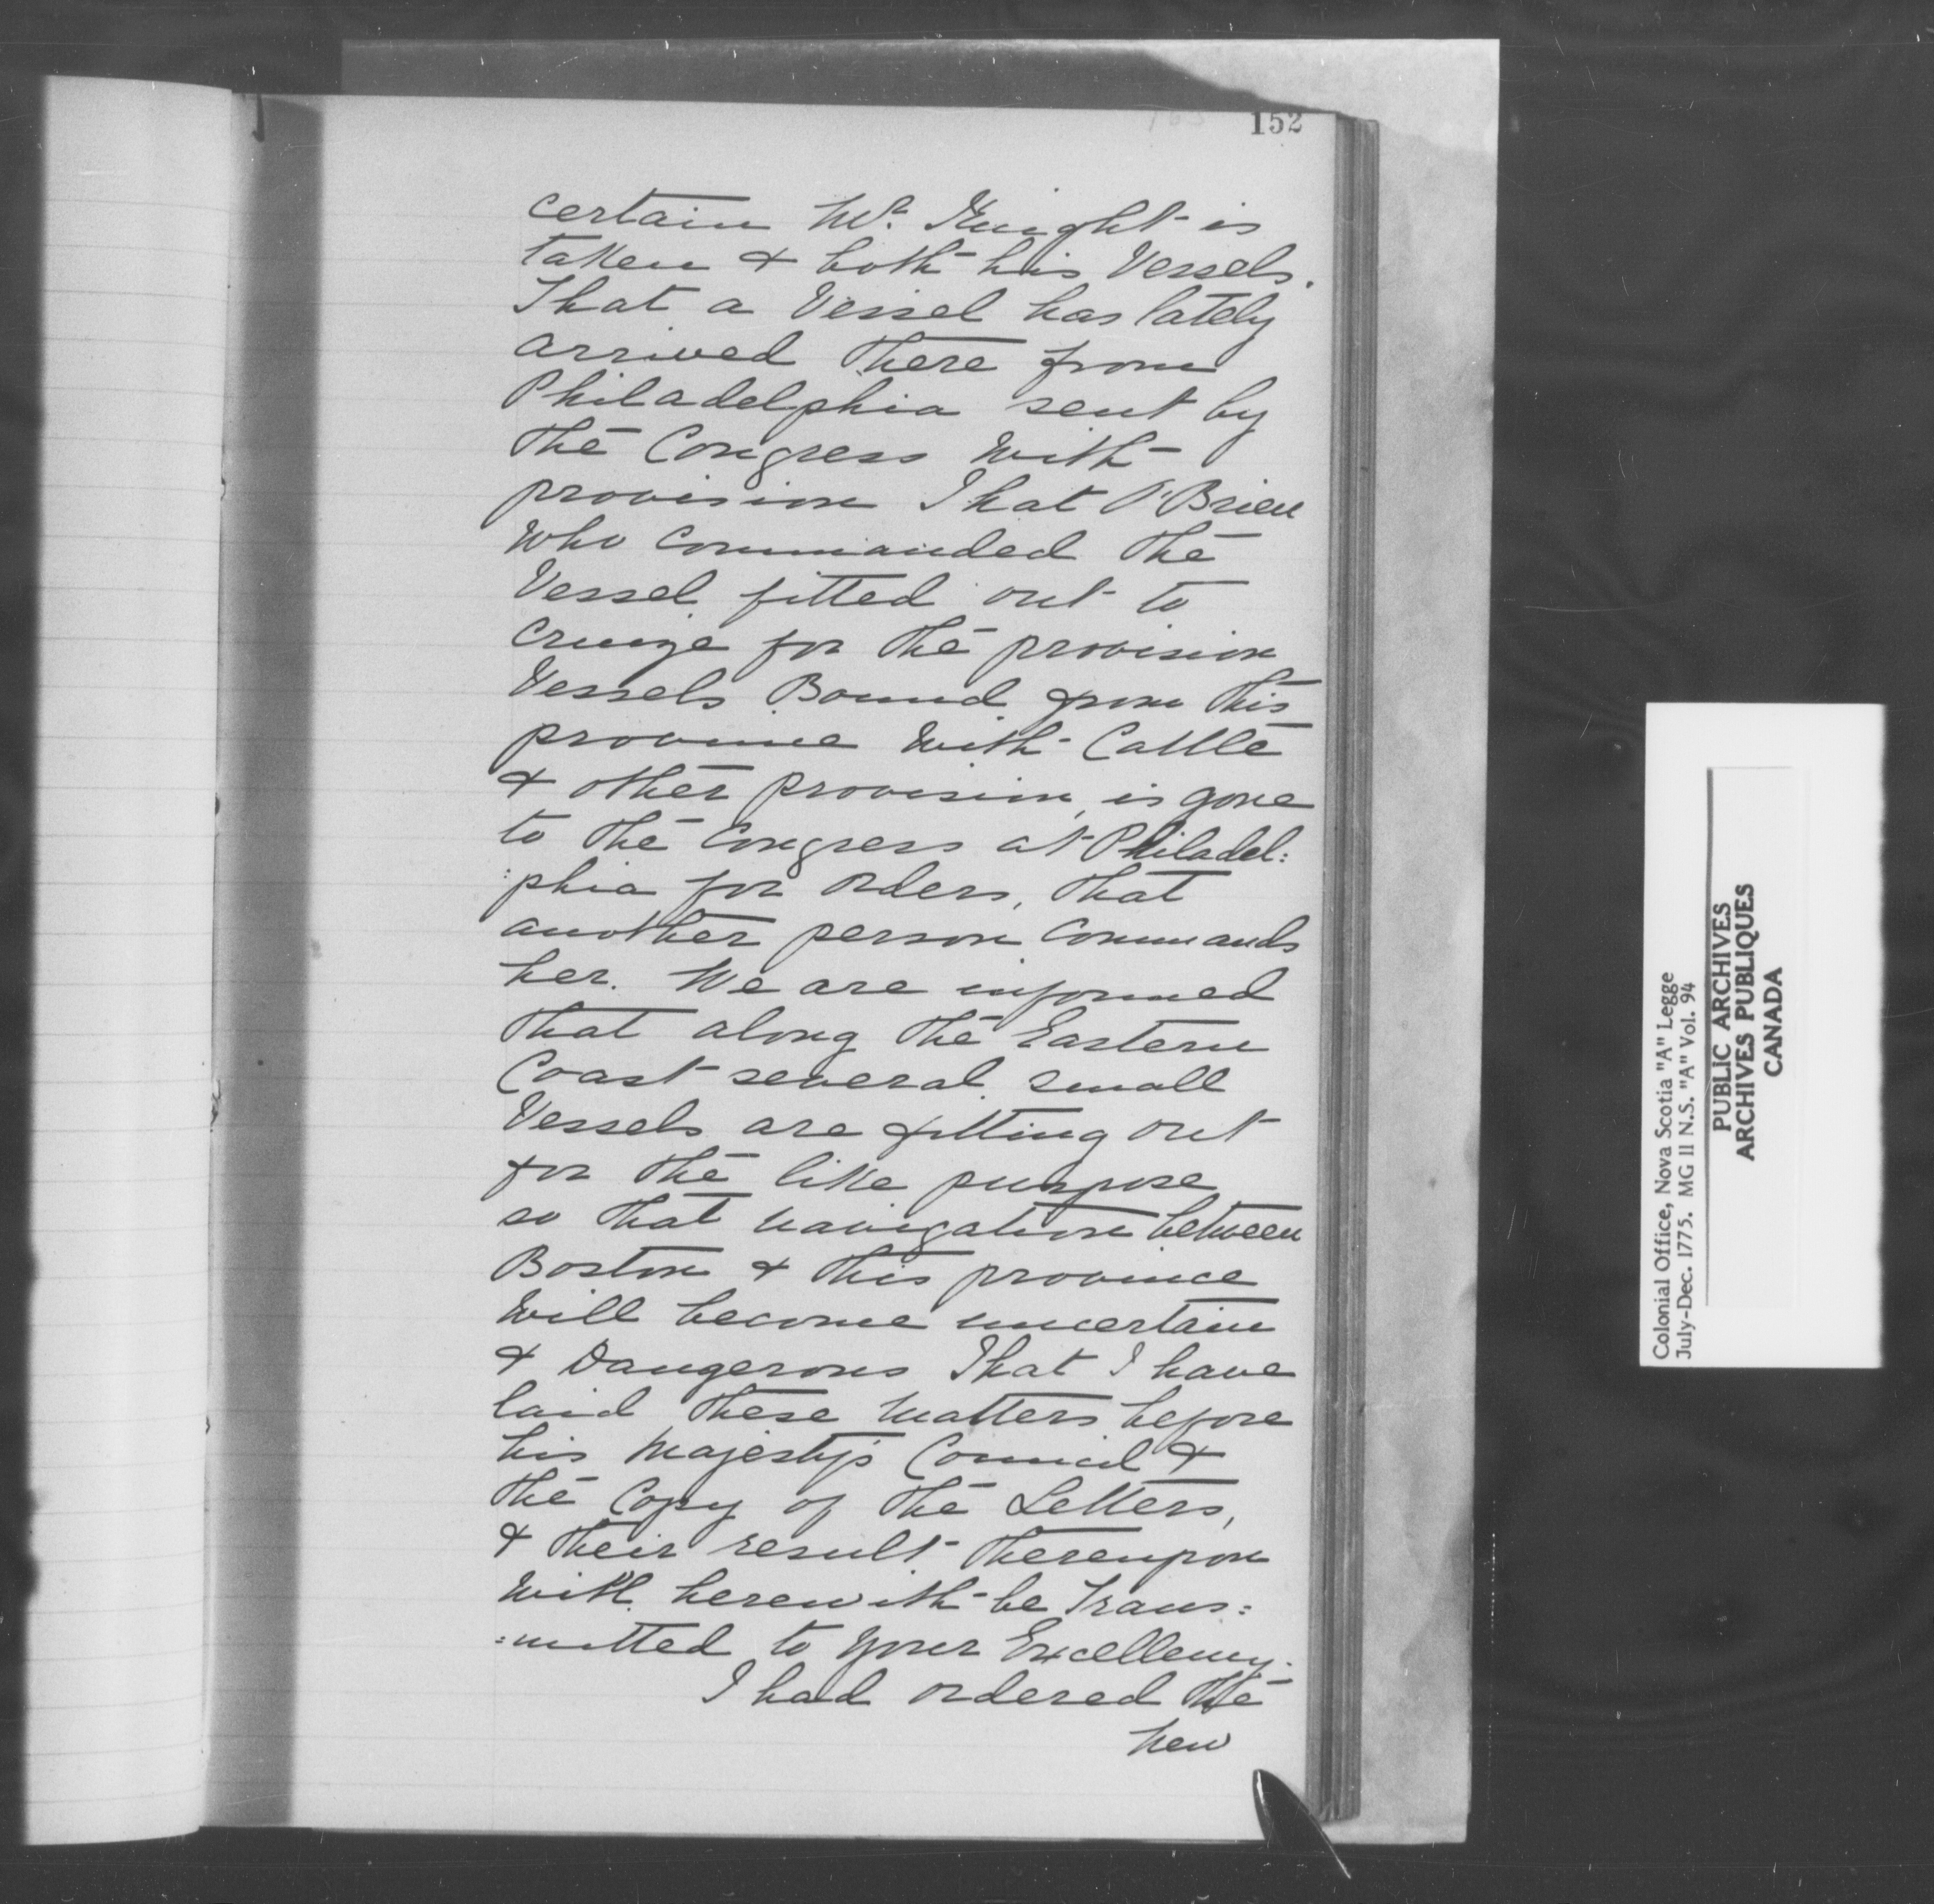 152
certain Mr. Knight is
taken & both his Vessels.
That a Vessel has lately
arrived there from
Philadelphia sent by
the Congress with
provision That O'Brien
who commanded the
Vessel fitted out to
cruize for the provision
Vessels Bound from this
province with Cattle
& other provision, is gone
to the Congress at Philadel:
:phia for orders, that
another person commands
her. We are informed
that along the Eastern
Coast several small
Vessels are fitting out
for the like purpose
so that navigation between
Boston & this province
will become uncertain
& Dangerous That I have
laid these matters before
his Majesty's Council &
the Copy of the Letters,
& their result thereupon
will herewith be Trans:
:mitted to your Excellency.
I had ordered the
new
Colonial Office, Nova Scotia "A" Legge
July-Dec. 1775. MG 11 N.S. "A" Vol. 94
PUBLIC ARCHIVES
ARCHIVES PUBLIQUES
CANADA